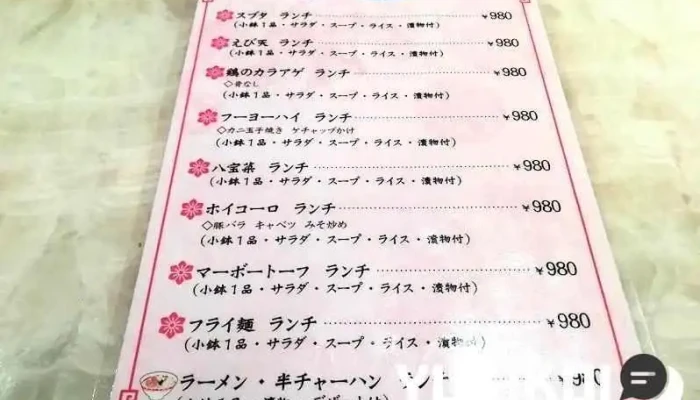 スブタ ランチ ¥980
(小鉢1品・サラダ・スープ・ライス・漬物付)
えび天 ランチ ¥980
(小鉢1品・サラダ・スープ・ライス・漬物付)
鶏のカラアゲ ランチ ¥980
◇骨なし
(小鉢1品・サラダ・スープ・ライス・漬物付)
フーヨーハイ ランチ ¥980
◇カニ玉子焼き ケチャップかけ
(小鉢1品・サラダ・スープ・ライス・漬物付)
八宝菜 ランチ ¥980
(小鉢1品・サラダ・スープ・ライス・漬物付)
ホイコーロ ランチ ¥980
◇豚バラ キャベツ みそ炒め
(小鉢1品・サラダ・スープ・ライス・漬物付)
マーボートーフ ランチ ¥980
(小鉢1品・サラダ・スープ・ライス・漬物付)
フライ麺 ランチ ¥980
(小鉢1品・サラダ・スープ・ライス・漬物付)
ラーメン・半チャーハン